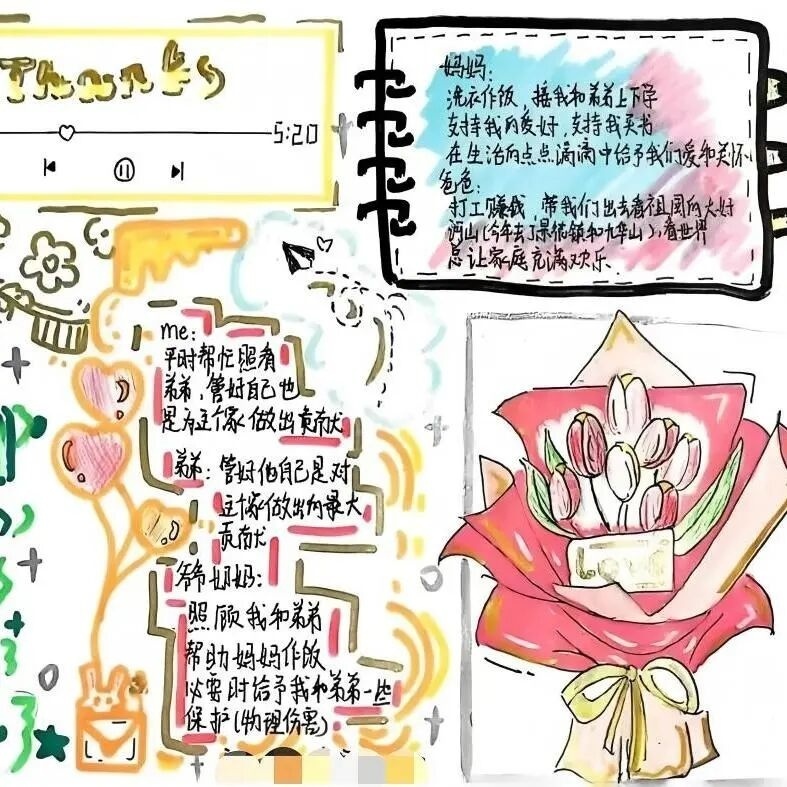 Thanks
5:20
妈妈:
洗衣作饭,接我和弟弟上下学
支持我的爱好,支持我买书
在生活的点点滴滴中给予我们爱和关怀
爸爸:
打工赚钱,带我们出去看祖国的大好
河山(今年去了景德镇和九华山),看世界
总让家庭充满欢乐.
me:
平时帮忙照看
弟弟,管好自己也
是为这个家做出贡献
弟弟:管好他自己是对
这个家做出的最大
贡献
照顾我和弟弟
帮助妈妈作饭
必要时给予我和弟弟一些
保护(物理伤害)
Love